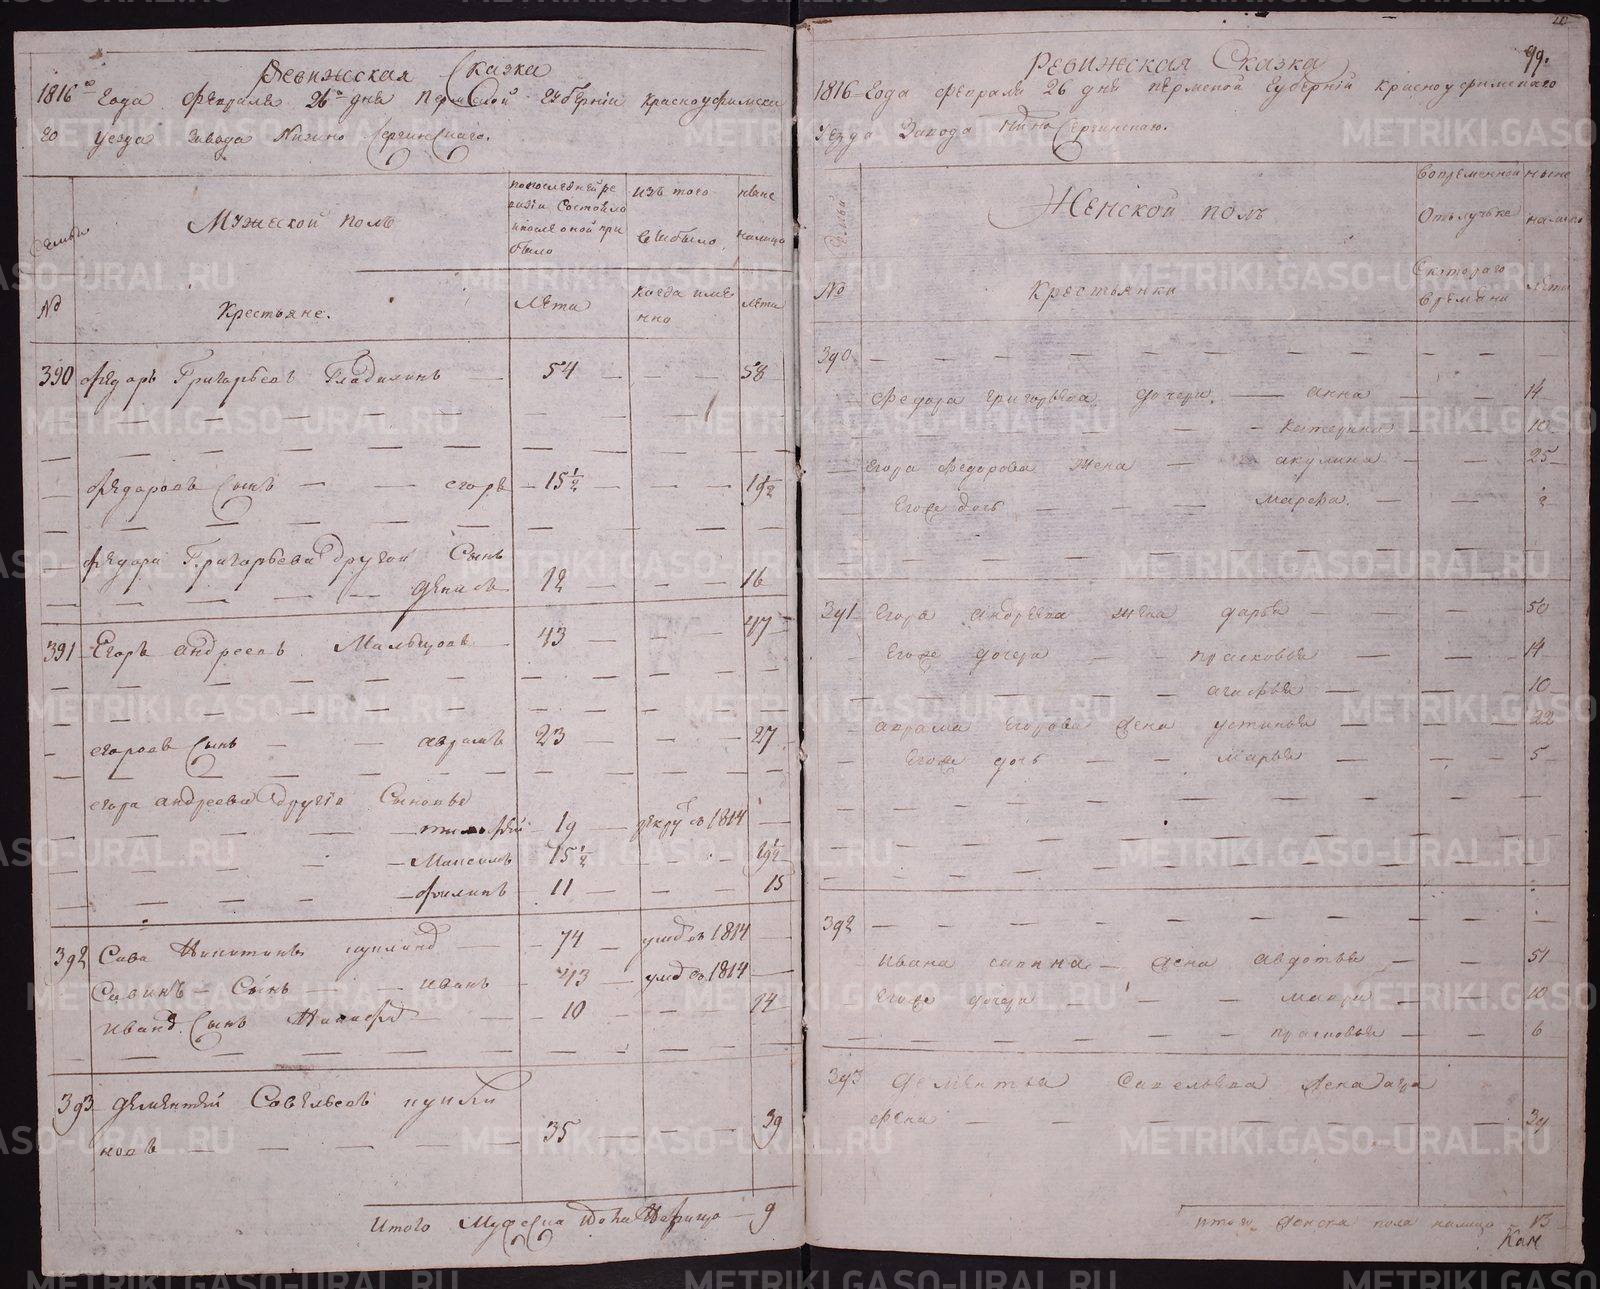 Ревижская Сказка
1816го Года Февраля 26го дня Пермской Губерніи Красноуфимска
го уезда завода Нижно Сергинскаго.
Семьи
Мужеской полъ
попоследней ре
визіи Состояло
ипосле оной при
было
изъ того
выбыло
ныне
налицо
No
Крестьяне.
Лета
Когда име
нно
лета
390 Федоръ Григорьевъ — 54 — — 58
Федоровъ Сынъ — — егоръ — 15½ — — 19½
Федора Григорьева другой Сынъ
денисъ 12 — — 16
391 Егоръ андреевъ Мальцовъ 43 — — 47
егоровъ Сынъ — — аврамъ 23 — — 27
егора андреева другіе Сыновья
тимофей — 19 — рекрутъ 1814 —
— Максимъ 15½ — — 19½
— филипъ — 11 — — 15
392 Сава Никитинъ — 74 — 1814 —
Савинъ — Сынъ — — иванъ — 43 — 1814 —
ивана Сынъ — — 10 — — 14
393 дементей Савельевъ
новъ — — — 35 — — 39
Итого налицо — 9
99.
Ревижская Сказка
1816 Года февраля 26 дня пермской Губерній Красноуфимскаго
Уезда Завода Нижно Сергинскаго.
Семьи
Женской полъ
вовременной
Отълучьке
ныне
налицо
No
Крестьянки
Скотораго
времени
лета
390 — — — — — — — —
Федора григорьева дочери. — анна — — 14
— — — — Катерина — — 10
Егора Федорова жена — акулина — — 25
Егоже дочь — — — марфа. — — 2
391 Егора андреева жена дарья — — — 50
Егоже дочери — — прасковья — — 14
— — — — агафья — — 10
аврама Егорова жена устинья — — — 22
Егоже дочь — — марья — — — 5
392 — — — — — — — —
ивана савина — жена авдотья — — 51
Егоже дочери — — мавра — — 10
— — — — прасковья — — 6
393 дементья Савельева жена агра
фена — — — — — 34
итого женска пола налицо — 13
METRIKI.GASO-URAL.RU